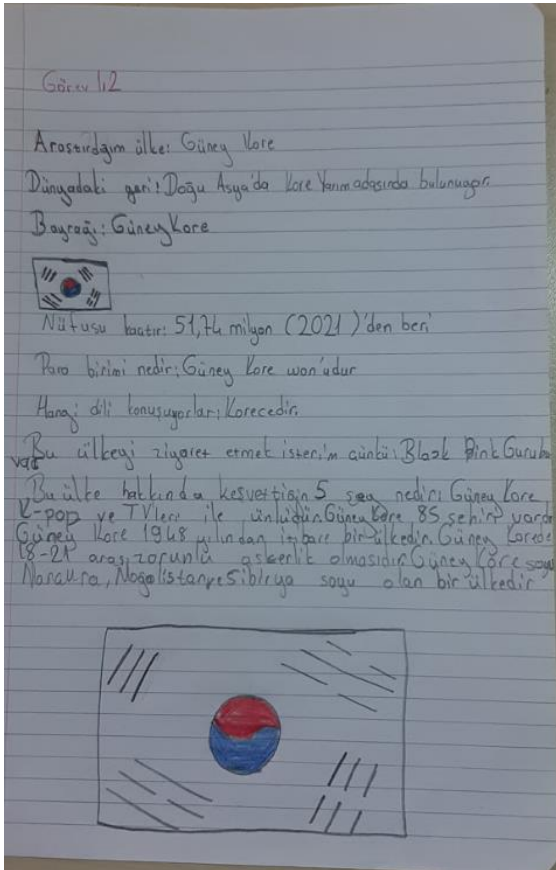 Görev 1,2
Arastırdğım ülke: Güney Kore
Dünyadaki yeri: Doğu Asya'da Kore Yarımadasında bulunuyor.
Bayrağı: Güney Kore
Nüfusu kaçtır: 51,74 milyon (2021)'den beri
Para birimi nedir: Güney Kore won'udur
Hangi dili konuşuyorlar: Korecedir.
Bu ülkeyi ziyaret etmek isterim çünkü: Black Pink Gurubu
var
Bu ülke hakkında keşvettiğin 5 şey nedir: Güney Kore
K-pop ve TVleri ile ünlüdür. Güney Kore 85 şehiri vardır
Güney Kore 1948 yılından itibare bir ülkedir. Güney Korede
18-21 arası zorunlu askerlik olmasıdır. Güney Kore soyu
Moğolistan ve Sibirya soyu olan bir ülkedir